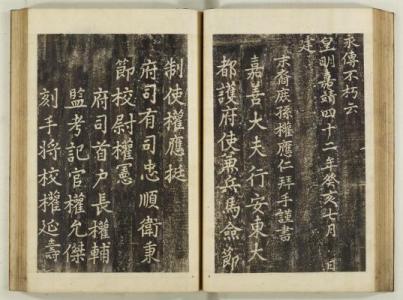 永傳不朽云
皇明嘉靖四十二年癸亥七月 日
建
末裔庶孫權應仁拜手謹書
嘉善大夫行安東大
都護府使兼兵馬僉節
制使權應挺
府司有司忠順衛秉
節校尉權憲
府司首户長權輔
監考記官權允傑
刻手將校權延壽